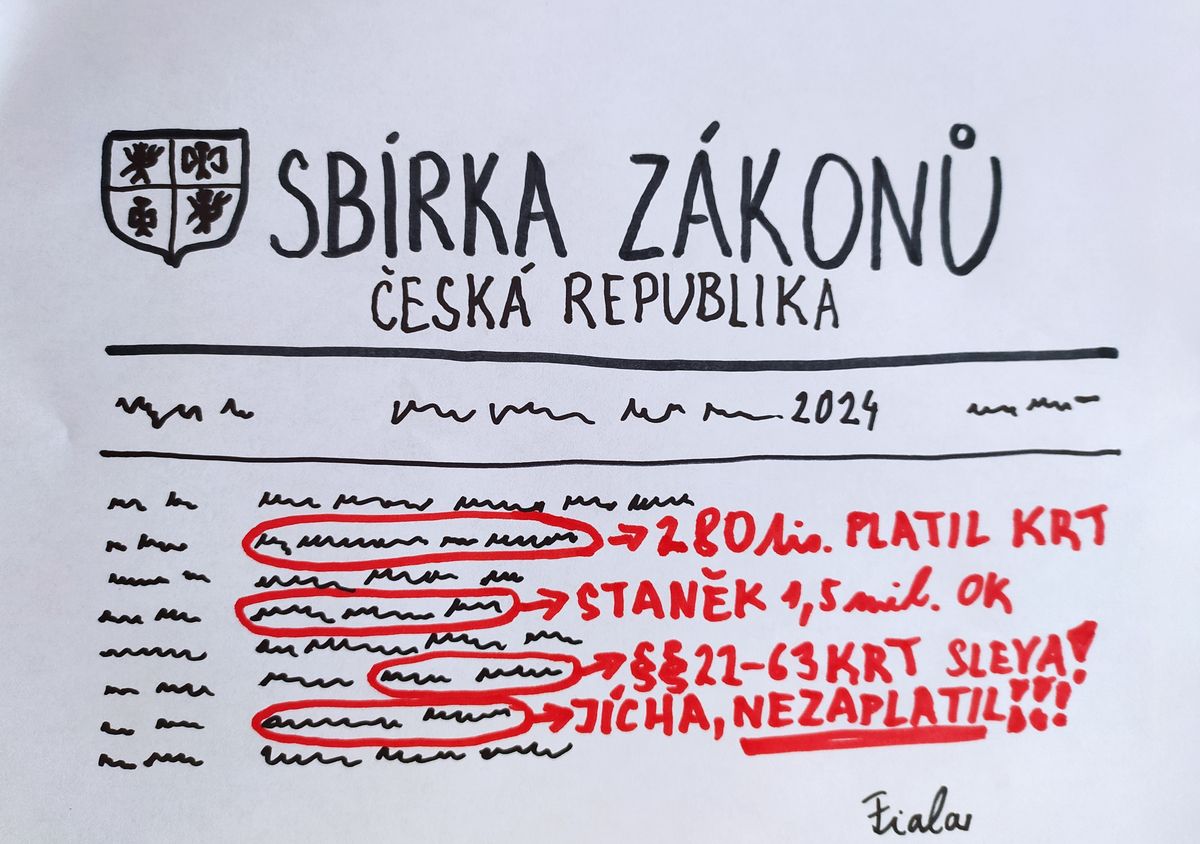 SBÍRKA ZÁKONŮ
ČESKÁ REPUBLIKA
2024
280 tis. PLATIL KRT
STANĚK 1,5 mil. OK
§§22-63 KRT SLEVA!
JÍCHA, NEZAPLATIL!!!
Fiala